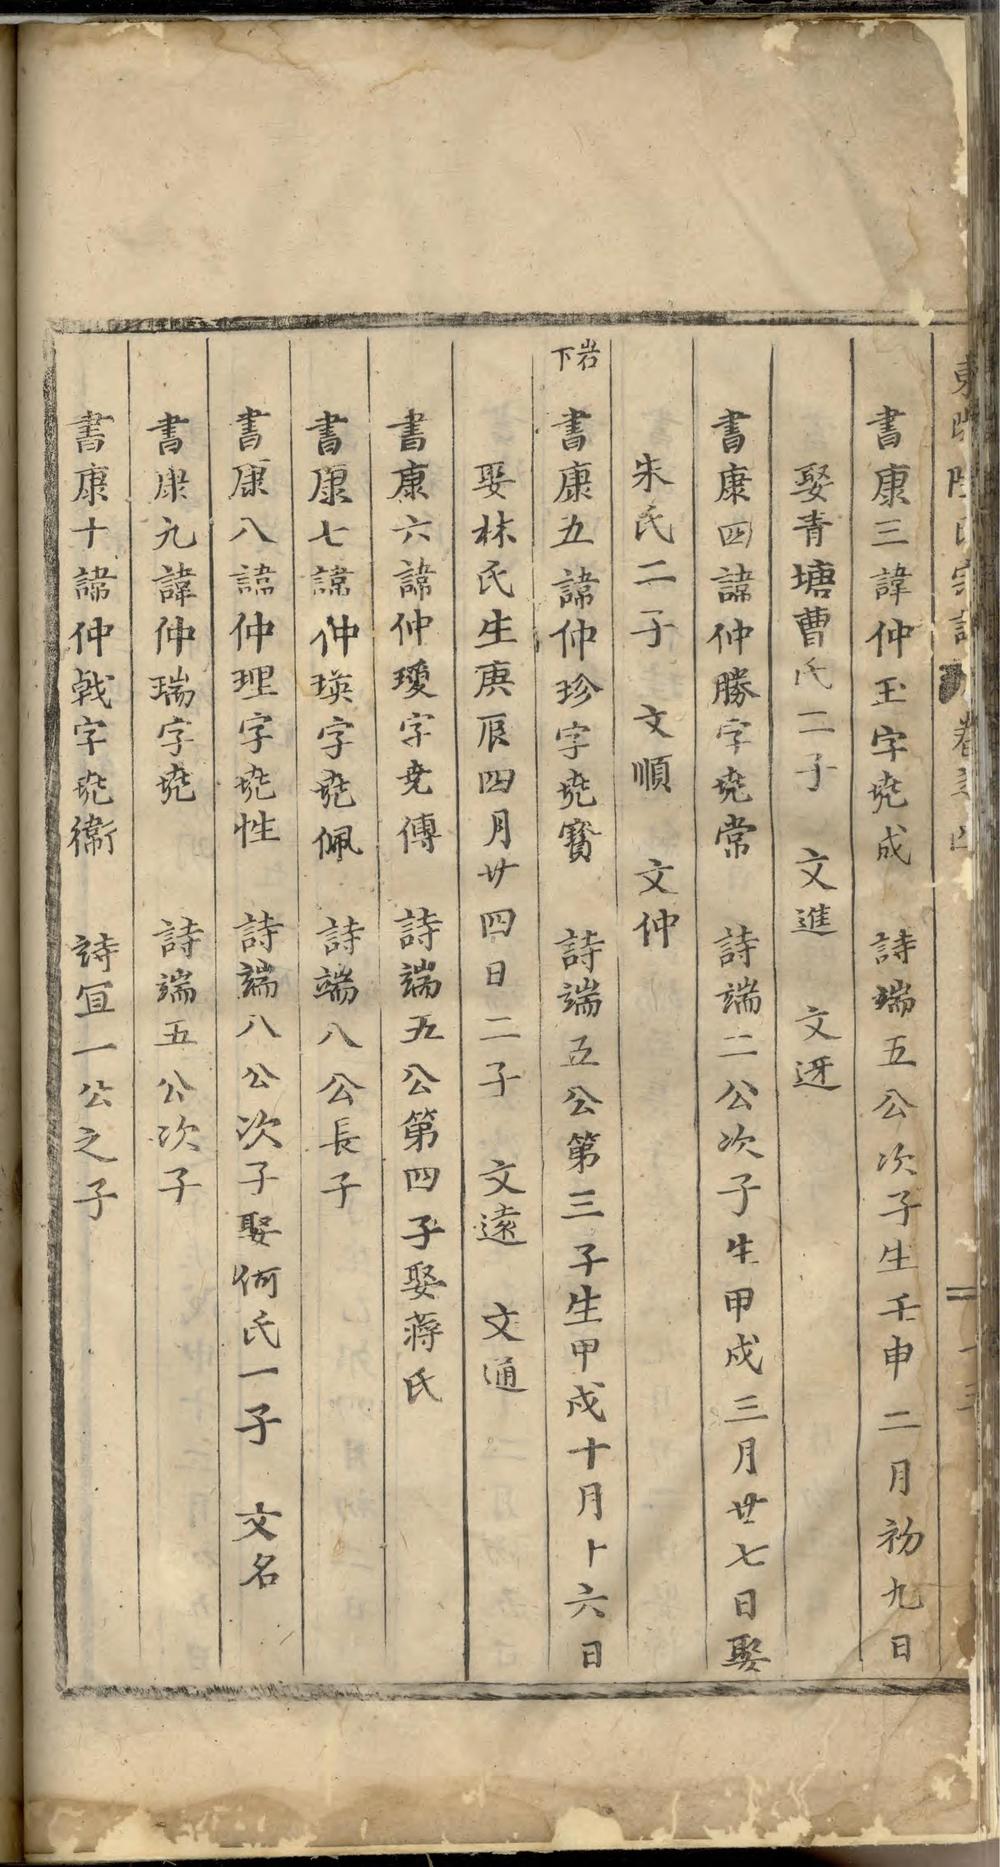 氏宗譜 卷之
書康三諱仲玉字堯成 詩瑞五公次子生壬申二月初九日
娶青塘曹氏二子 文進 文迓
書康四諱仲勝字堯常 詩端二公次子生甲戍三月廿七日娶
朱氏二子 文順 文仲
岩下
書康五諱仲珍字堯寳 詩端五公第三子生甲戍十月十六日
娶林氏生庚辰四月廿四日二子 文遠 文通
書康六諱仲璦字尭傳 詩端五公第四子娶蒋氏
書康七諱仲瑛字堯佩 詩端八公長子
書康八諱仲理字堯性 詩端八公次子娶何氏一子 文名
書康九諱仲瑞字堯 詩端五公次子
書康十諱仲戟字堯衛 詩冝一公之子